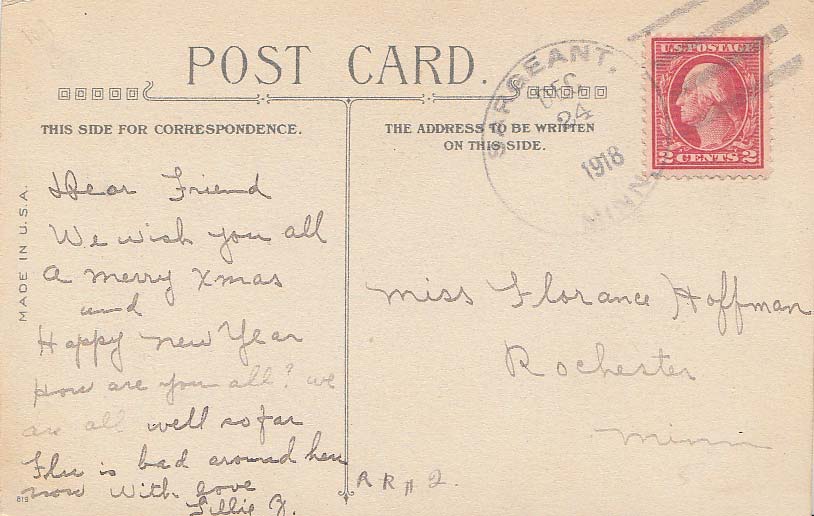 POST CARD.
THIS SIDE FOR CORRESPONDENCE.
THE ADDRESS TO BE WRITTEN
ON THIS SIDE.
SARGEANT,
DEC
24
1918
MINN.
U.S. POSTAGE
2 CENTS 2
MADE IN U.S.A.
Dear Friend
We wish you all
a merry Xmas
and
Happy New Year
How are you all? we
are all well so far
Flu is bad around here
now With love
Lillie J.
Miss Florance Hoffman
Rochester
Minn
RR# 2.
819